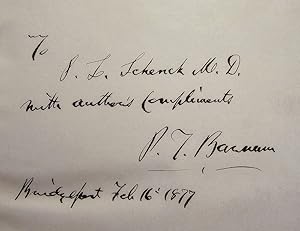 To
P. L. Schenck M. D.
with author's Compliments
P. T. Barnum
Bridgeport Feb 16' 1877